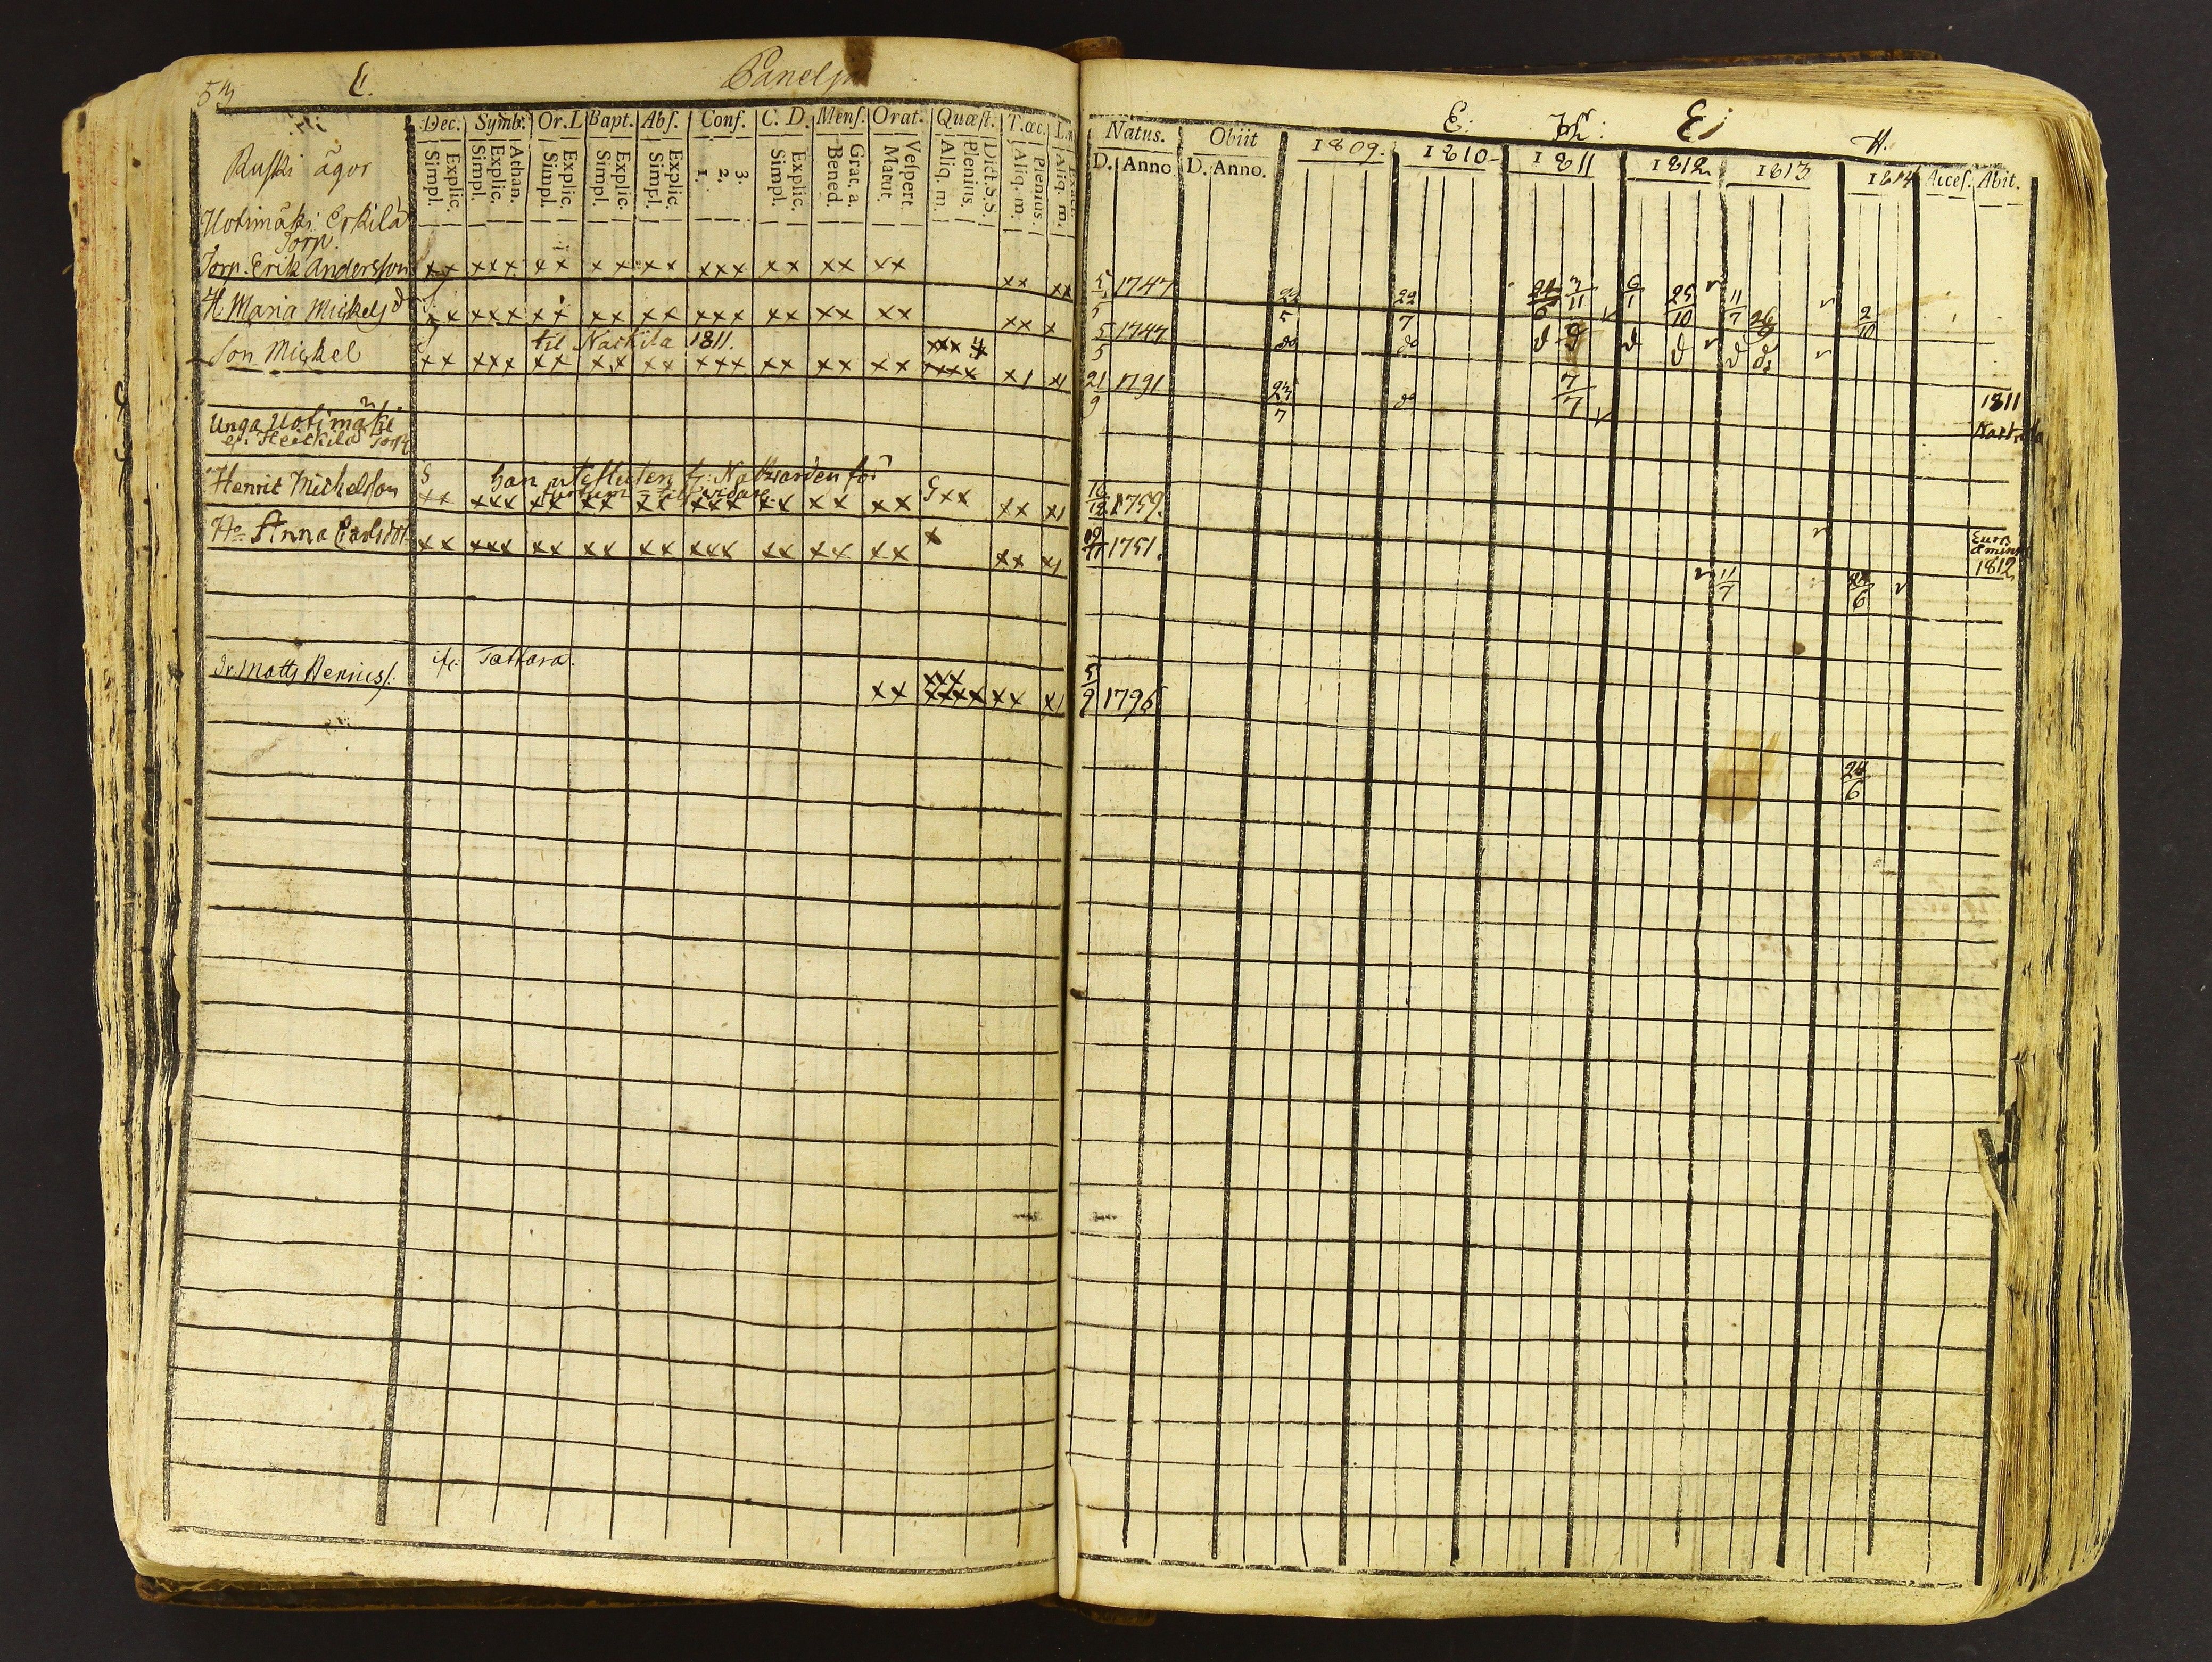 53
E.
Panelja
Dec. Symb. Or. D. Bapt. Abſ. Conf. C. D. Menſ. Orat. Quæſt. T. œc.
Explic. Simpl. Athan. Explic. Simpl. Explic. Simpl. Explic. Simpl. Explic. Simpl. 3. 2. 1. Explic. Simpl. Grat. a. Bened. Veſpert. Matut. Dict. S.S. Plenius. Aliq. m. Plenius. Aliq. m. Aliq. m.
Ruski ägor
Uotimäki Erkilä
Torp.
Torp. Erik Andersson xx xxx xx xx xx xxx xx xx xx xx xx
H. Maria Mickelsd xx xxx xx xx xx xxx xx xx xx xx x
til Nackila 1811.
Son Mickel xx xxx xx xx xx xxx xx xx xx xxxx x1 x1
Unga Uotimäki
el. Heickilä Torp
han utesluten fr. Nattvarden för
furtum - til vidare
Henric Michelsson xx xxx xx xx xx xxx xx xx xx xx xx x1
Ho Anna Carlsdot. xx xxx xx xx xx xxx xx xx xx x xx x1
Dr Matts Henrics. Tattara.
xx xxxx xx x1
E: E: H.
Natus. Obiit 1809. 1810 1811 1812 1813 1814 Acceſ. Abit.
D. Anno D. Anno.
5/5 1747 22/5 22/7 7/11 6/1 25/10 11/7 26/9 2/10
5/5 1747 do do d d d d d
21/9 1791 23/7 do 7/7 1811
Nackila
16/12 1759. Eura
1812
19/11 1751. 11/7 24/6
5/9 1796
24/6